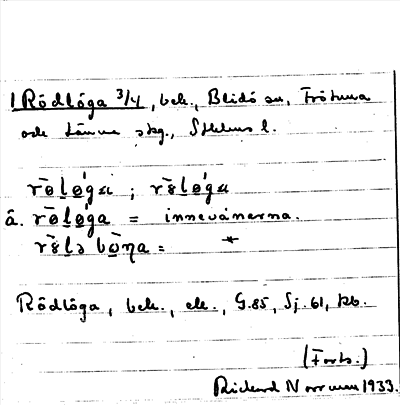 1 Rödlöga 3/4, beb., Blidö sn, Frötuna
och Länna skg., Sthlms l.
rö̀lö́ga ; rö̀lö́ga
å. rö̀lö́ga = innevånarna.
=
Rödlöga, beb., ek., G.85, Sj. 61, kb.
(Forts.)
Rickard Norrman 1933.